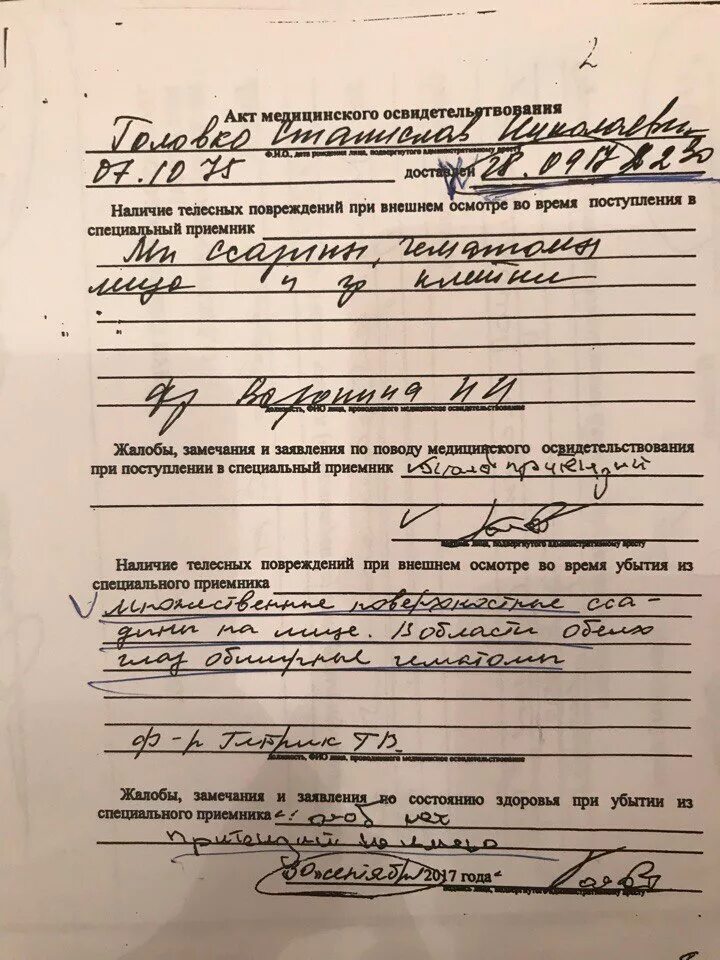 2
Акт медицинского освидетельствования
Головко Станислав Николаевич
Ф.И.О., дата рождения лица, подвергнутого административному аресту
07.10 75 доставлен 28.09 17 22 30
Наличие телесных повреждений при внешнем осмотре во время поступления в
специальный приемник
Мн ссадины, гематомы
лица и гр клетки
фр Воронина Н И
должность, ФИО лица, проводившего медицинское освидетельствование
Жалобы, замечания и заявления по поводу медицинского освидетельствования
при поступлении в специальный приемник
подпись лица, подвергнутого административному аресту
Наличие телесных повреждений при внешнем осмотре во время убытия из
специального приемника
множественные поверхностные сса-
дины на лице. В области обеих
глаз обширные гематомы
ф-р ТВ.
должность, ФИО лица, проводившего медицинское освидетельствование
Жалобы, замечания и заявления по состоянию здоровья при убытии из
специального приемника жалоб нет
претензий не имею
"30" сентября 2017 года
подпись лица, подвергнутого административному аресту